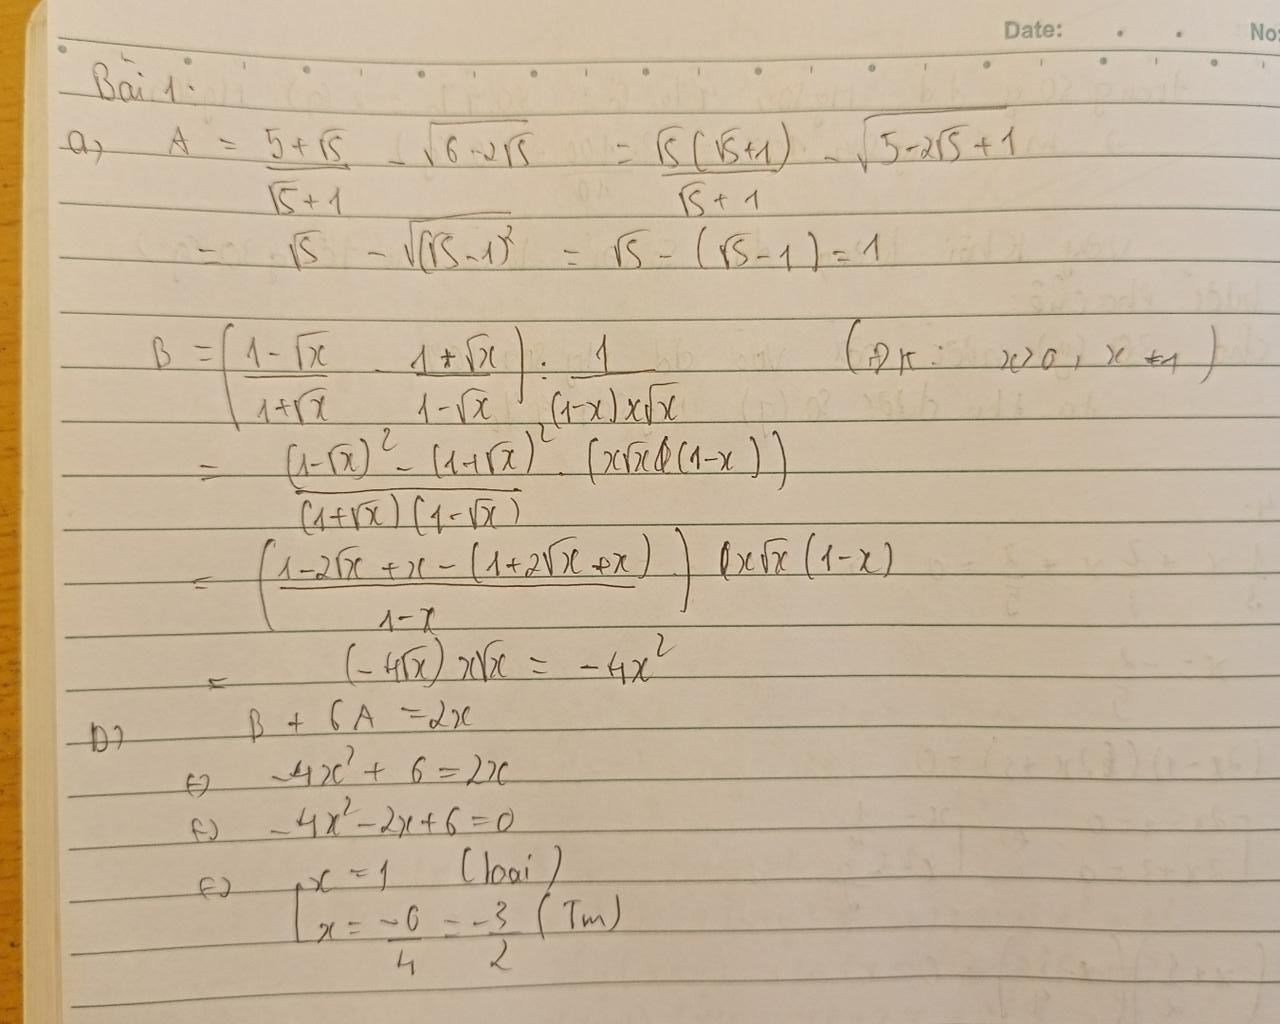 Date: No:
Bài 1:
a, A = (5+√5)/(√5+1) - √(6-2√5) = √5(√5+1)/(√5+1) - √(5-2√5+1)
= √5 - √((√5-1)²) = √5 - (√5-1) = 1
B = ((1-√x)/(1+√x) - (1+√x)/(1-√x)) : 1/((1-x)x√x) (ĐK: x>0, x≠1)
= ((1-√x)² - (1+√x)²)/((1+√x)(1-√x)) . (x√x(1-x))
= ((1-2√x+x-(1+2√x+x))/(1-x)) x√x(1-x)
= (-4√x)x√x = -4x²
b) B + 6A = 2x
(=) -4x² + 6 = 2x
(=) -4x² - 2x + 6 = 0
(=) [x = 1 (loại)
x = -6/4 = -3/2 (Tm)